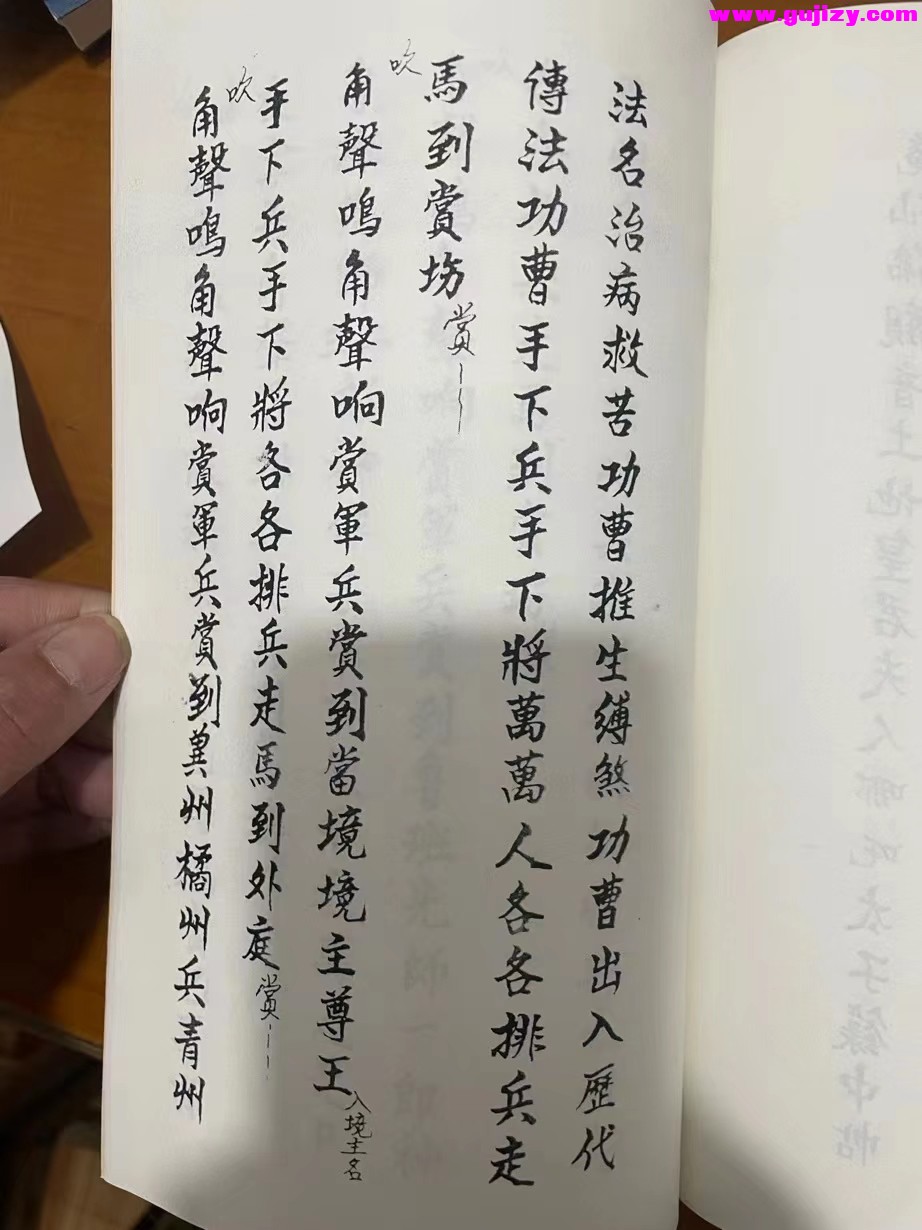 www.gujizy.com
法名治病救苦功曹推生縛煞功曹出入歷代
傳法功曹手下兵手下將萬萬人各各排兵走
馬到賞坊賞
吹
角聲鳴角聲响賞軍兵賞到當境境主尊王入境主名
手下兵手下將各各排兵走馬到外庭賞
吹
角聲鳴角聲响賞軍兵賞到冀州橘州兵青州